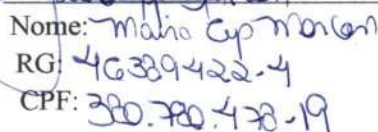 Nome: Maira Cyp Marcon
RG: 46389422-4
CPF: 380.780.478-19